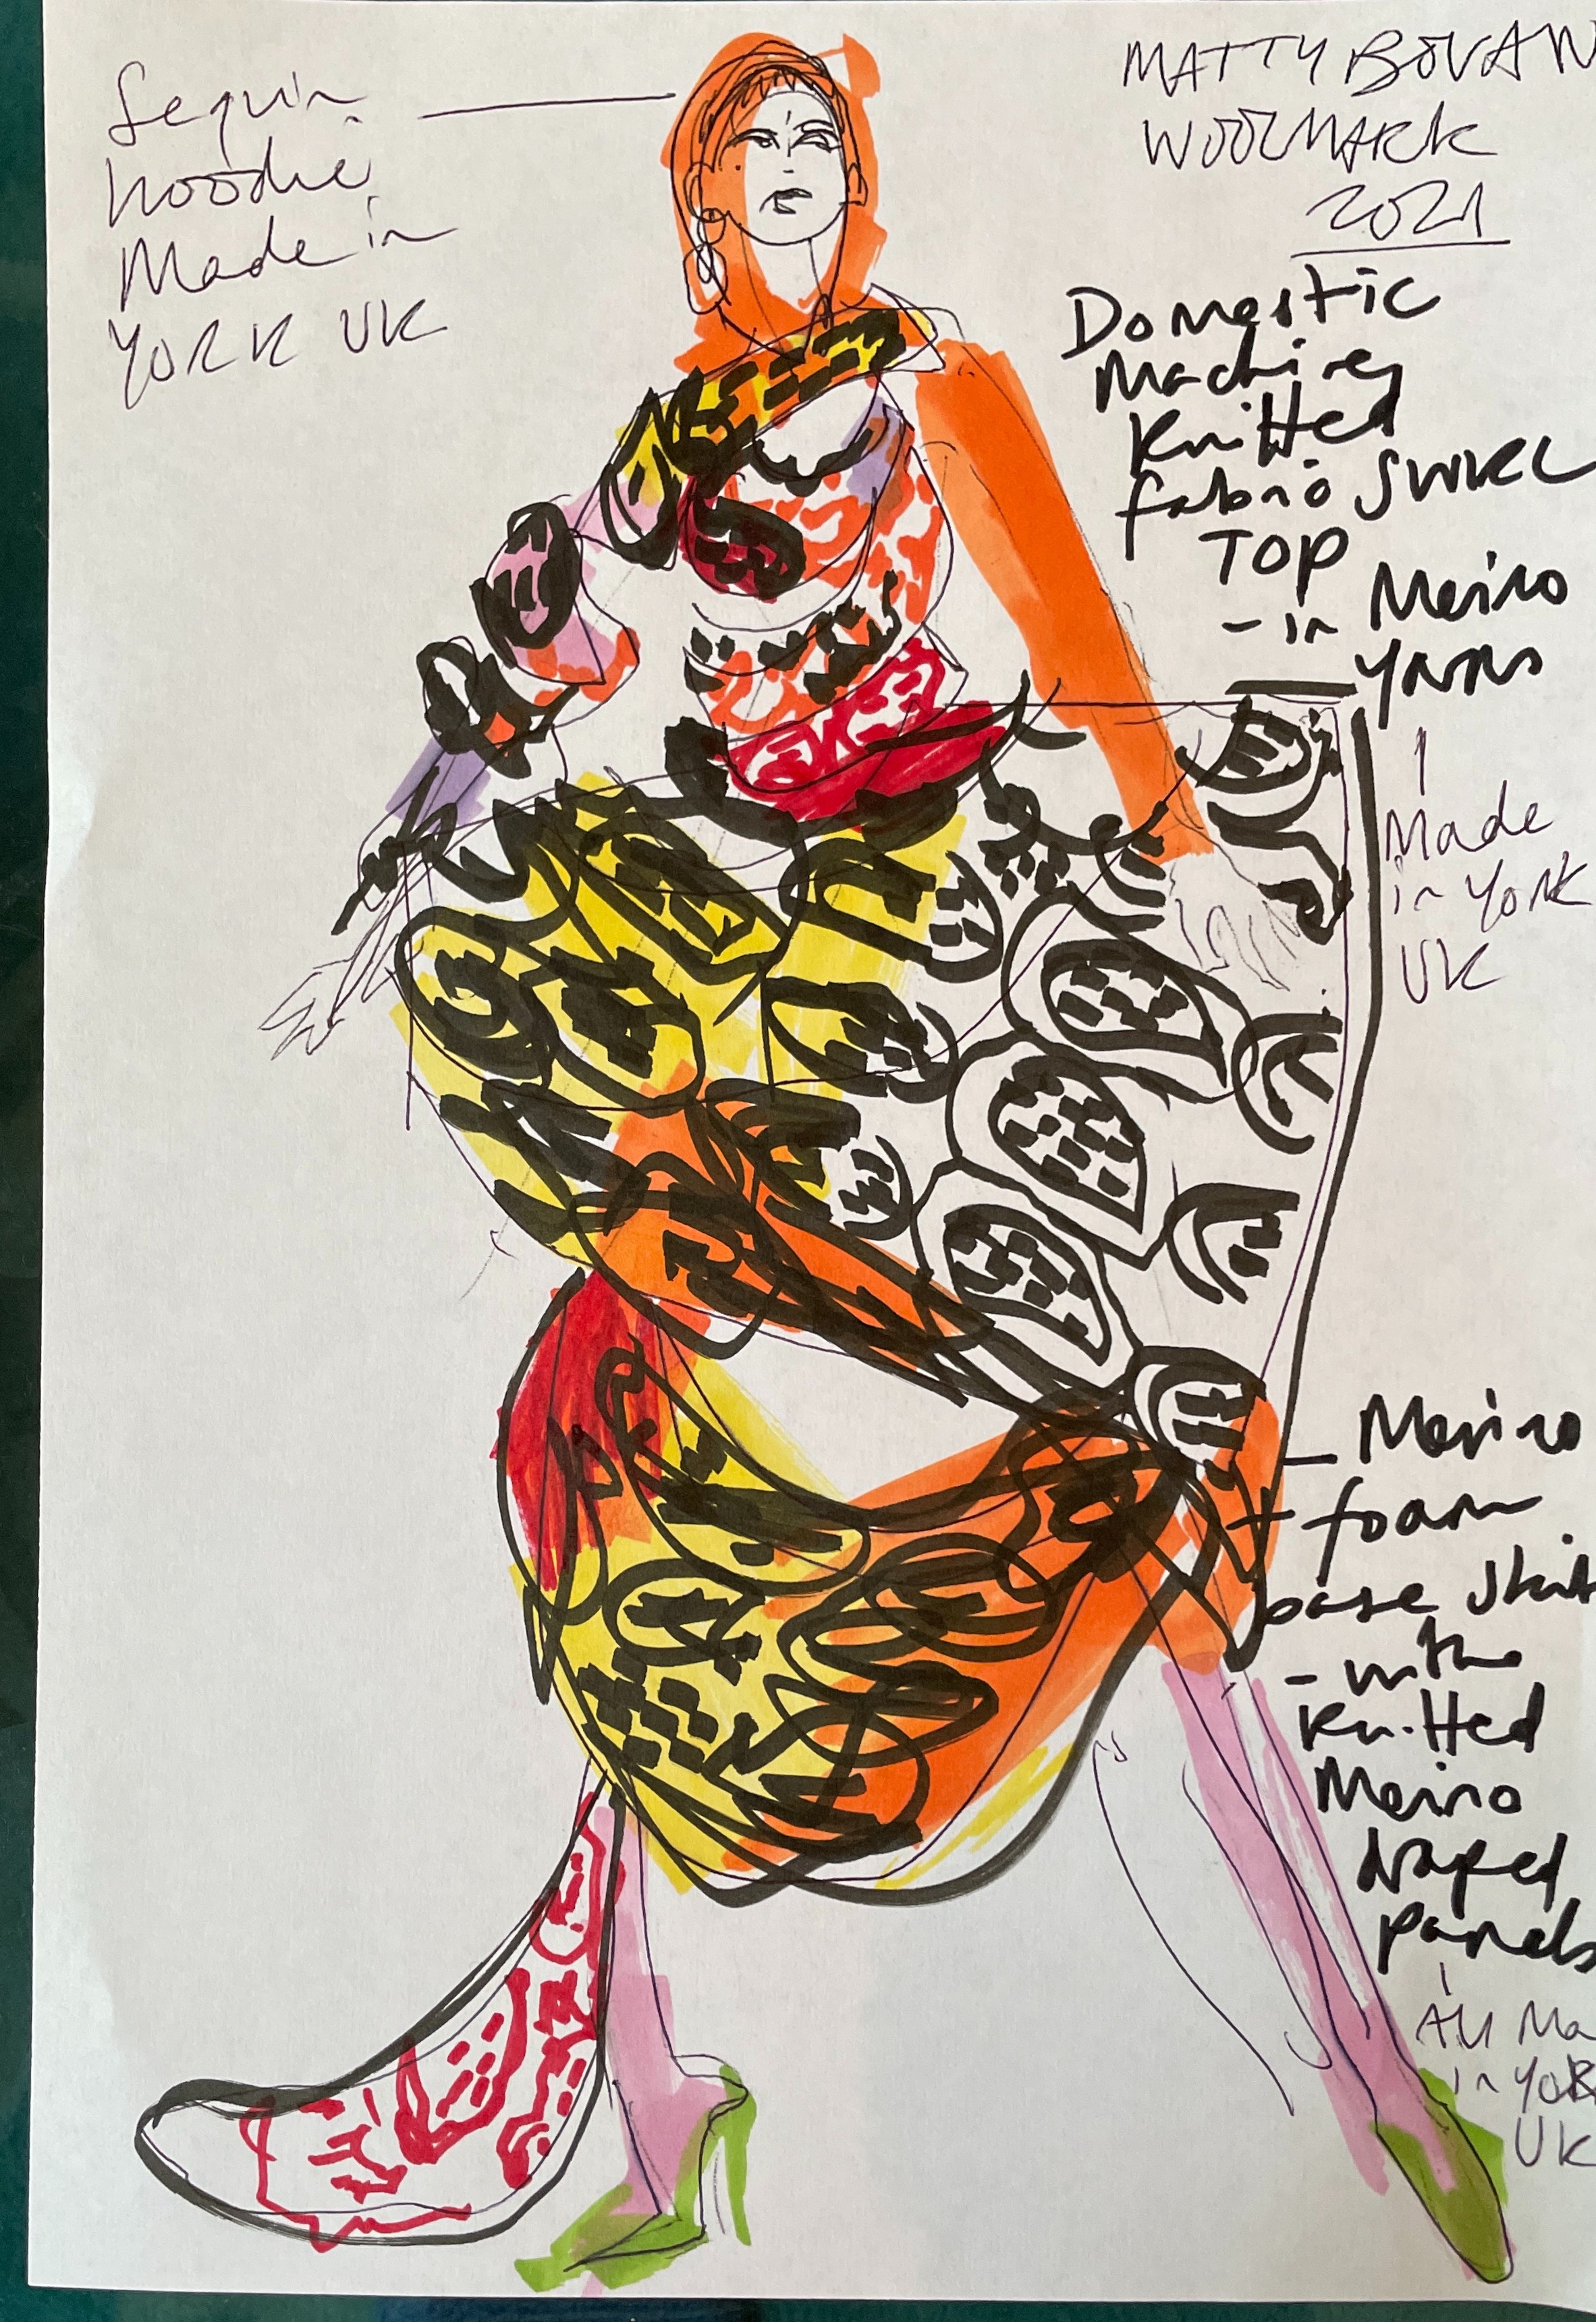 Sequin
hoodie
Made in
YORK UK
MATTY BOVAN
WOOLMARK
2021
Domestic
Machine
Knitted
fabric SWIRL
TOP
- in Merino
yarns
Made
in York
UK
Merino
+ foam
base skirt
- with
knitted
Merino
draped
panels
All Ma
in YORK
UK